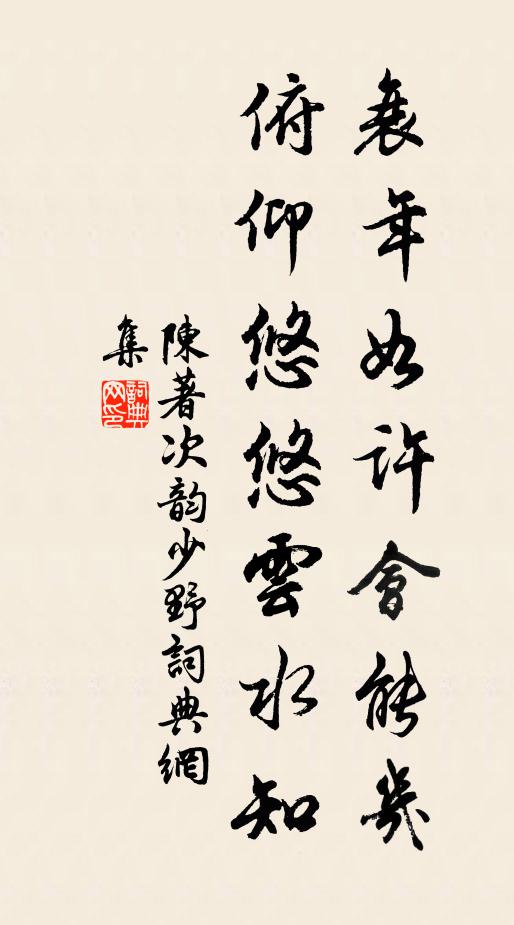 衰年如許會能幾
俯仰悠悠雲水知
陳著次韵少野詞典網
集
詞典网印